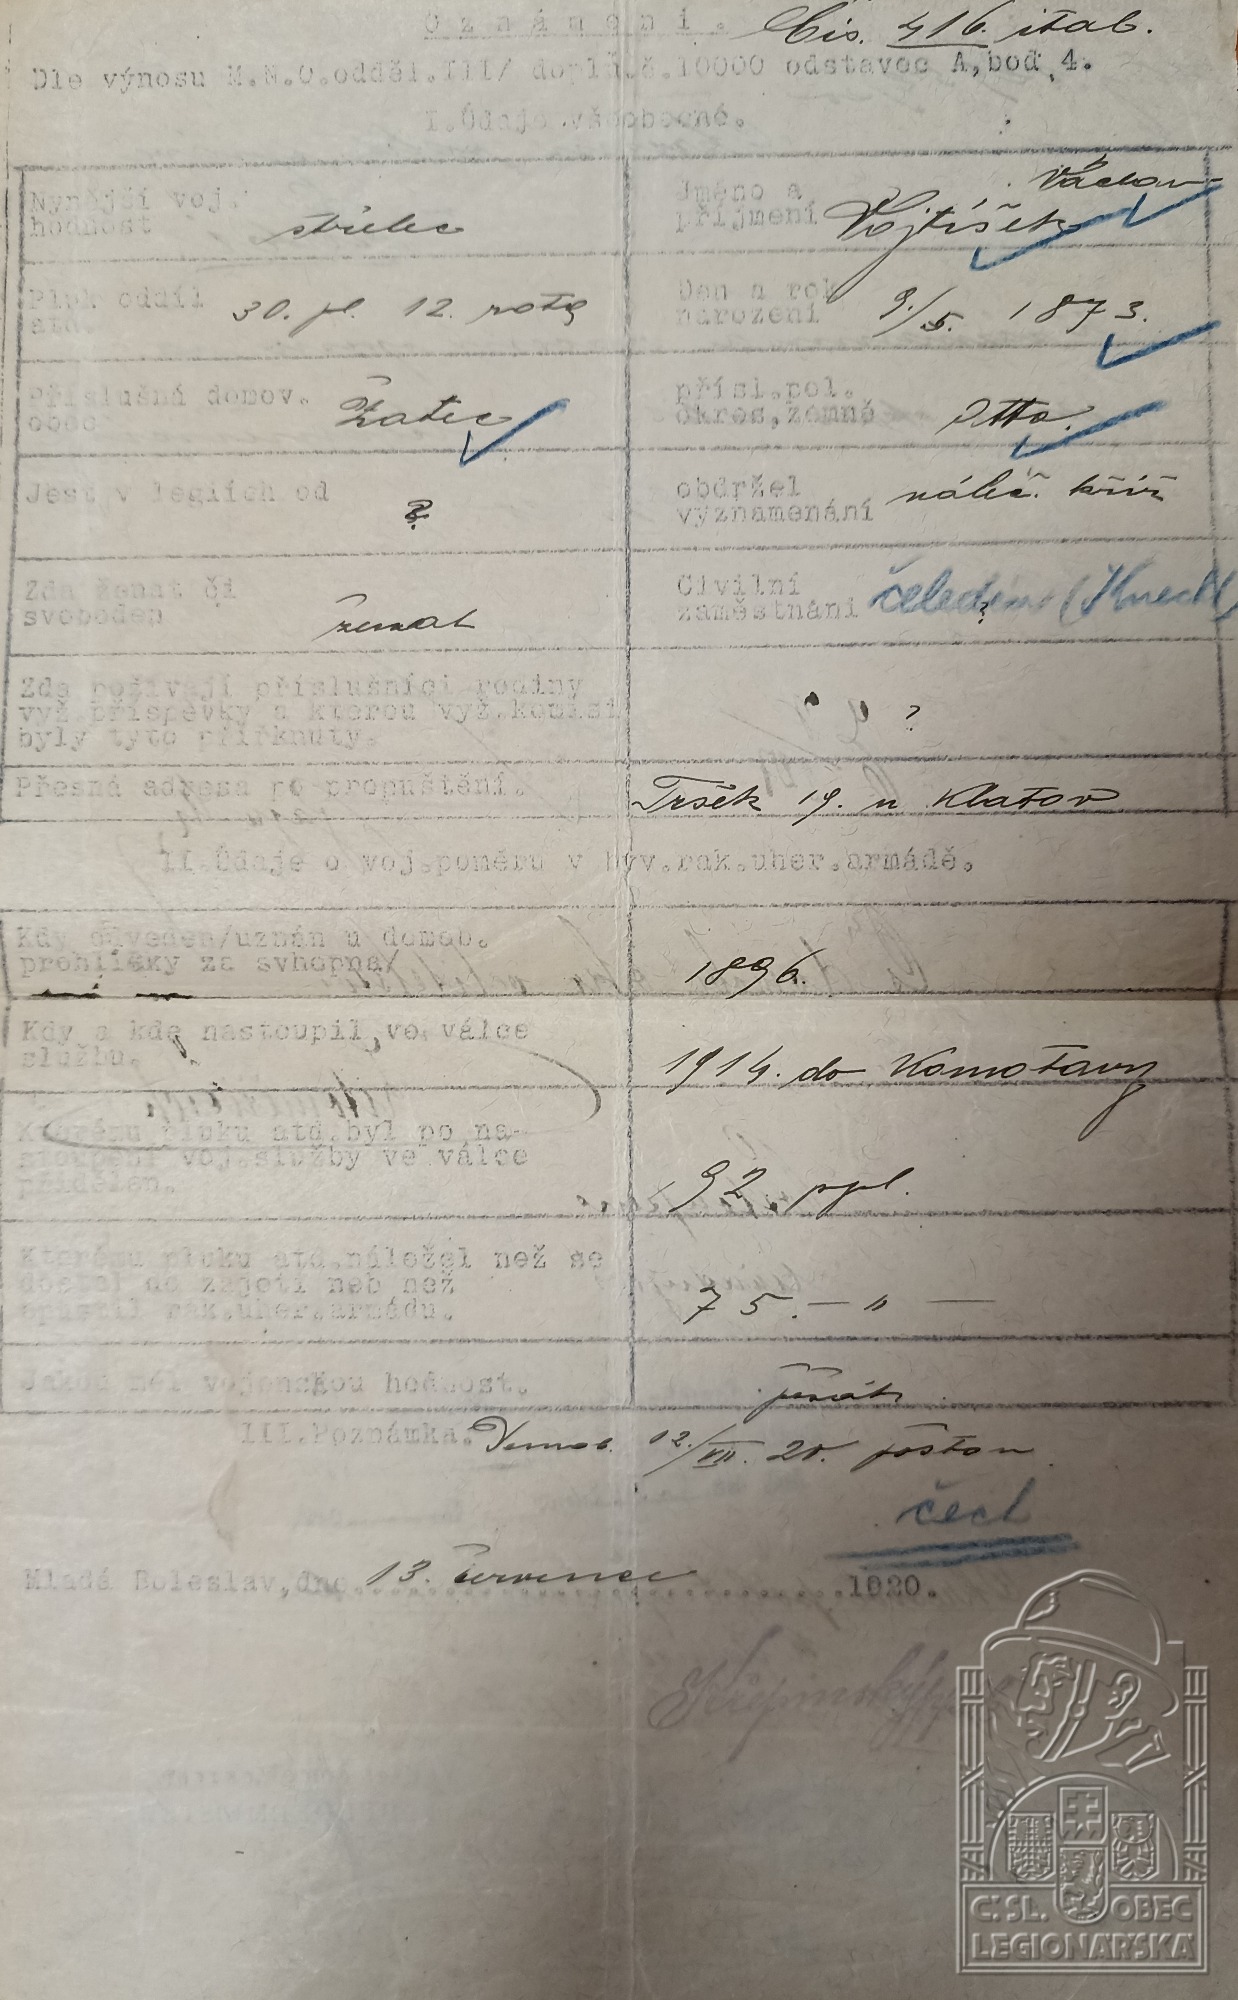 Oznámení. Čís. 416. ital.
Dle výnosu M.N.O.odděl.III/ doplň.č.10000 odstavec A,bod 4.
I.Údaje všeobecné.
Nynější voj.
hodnost střelec
Jméno a
příjmení Vojtíšek Václav
Pluk oddíl
atd. 30. pl. 12. rota
Den a rok
narození 9./5. 1873.
Příslušná domov.
obec Žatec
přísl.pol.
okres,země dtto.
Jest v legiích od ?
obdržel
vyznamenání náleč. kříž
Zda ženat či
svoboden ženat
Civilní
zaměstnání čeledín (Knecht) ?
Zda požívají příslušníci rodiny
vyž.příspěvky a kterou vyž.komisí
byly tyto přiřknuty. ?
Přesná adresa po propuštění. 19. u Klatov
II.Údaje o voj.poměru v býv.rak.uher.armádě.
Kdy odveden/uznán u domob.
prohlídky za svhopna/ 1896.
Kdy a kde nastoupil ve válce
službu. 1914. do Komotavy
Kterému pluku atd.byl po na-
stoupení voj.služby ve válce
přidělen. 92. ppl.
Kterému pluku atd.náležel než se
dostal do zajetí neb než
opustil rak.uher.armádu. 75. — " —
Jakou měl vojenskou hodnost. pěšák
III.Poznámka. 12./VII. 20.
čech
Mladá Boleslav,dne 13. červenec 1920.
Č.SL. OBEC
LEGIONÁŘSKÁ